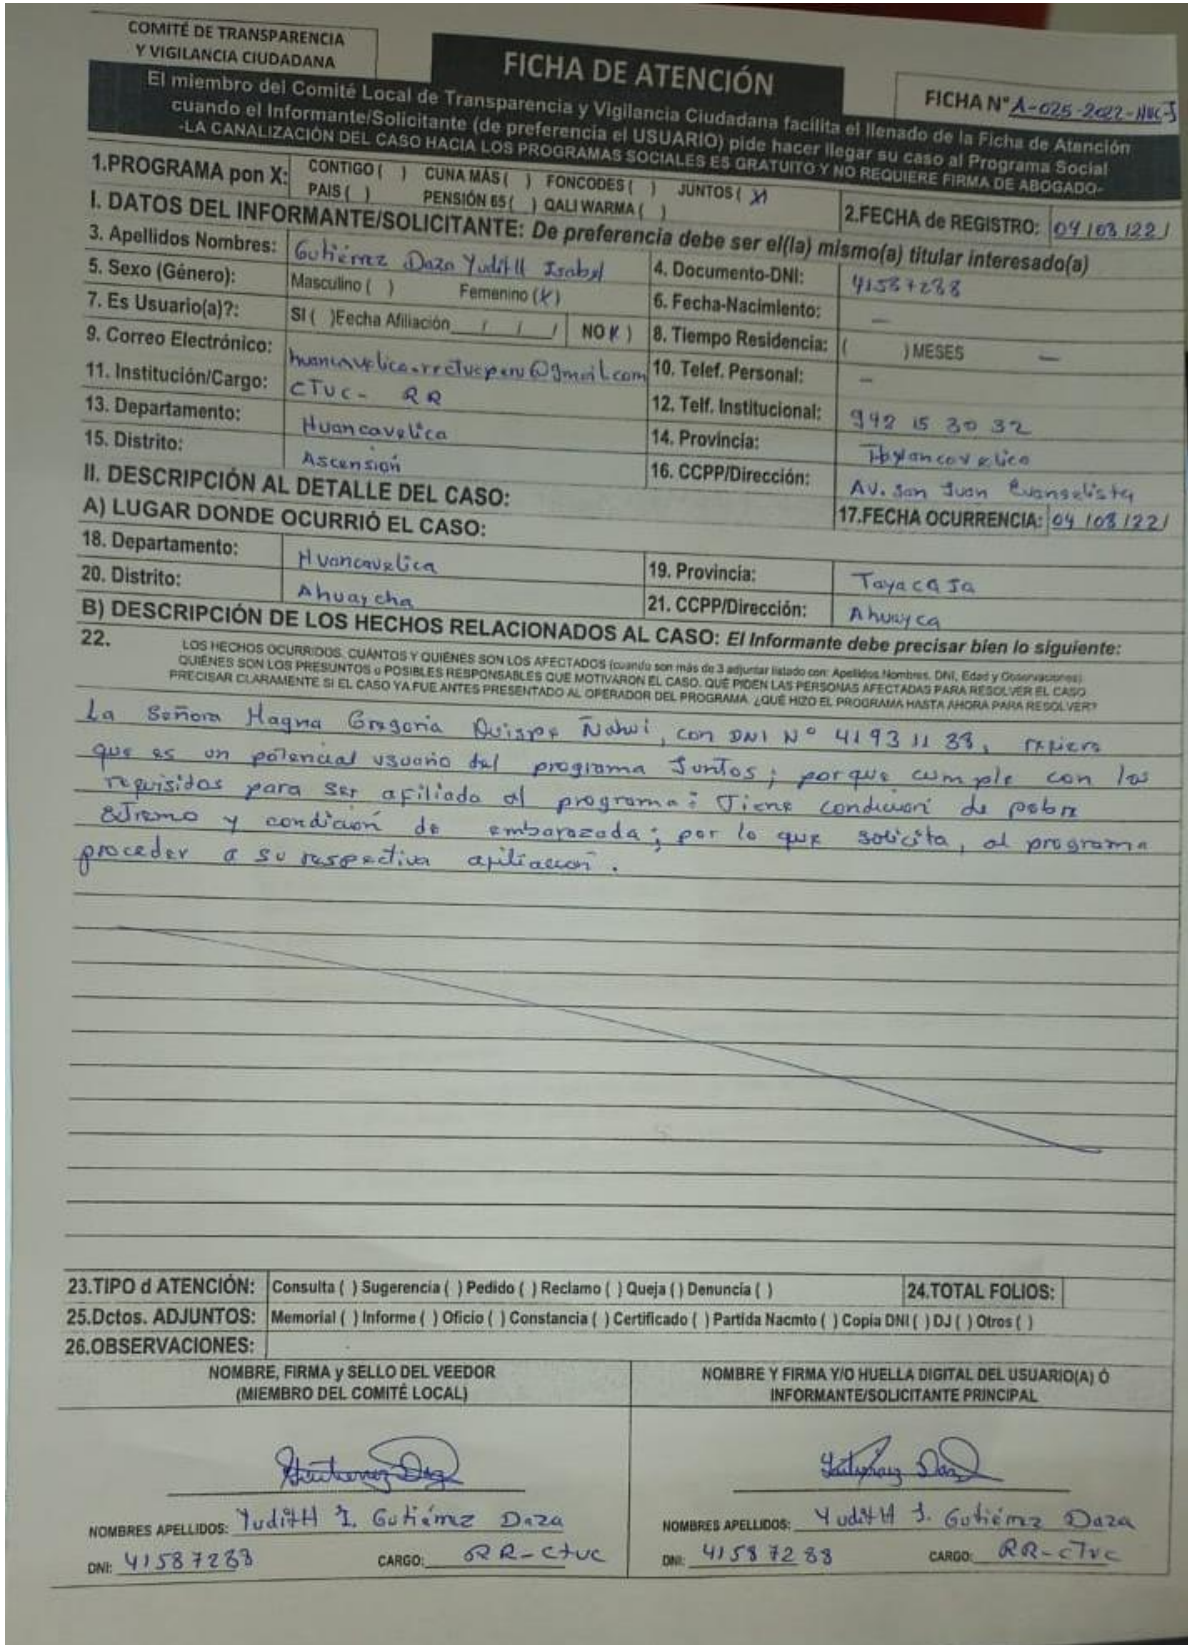 COMITÉ DE TRANSPARENCIA
Y VIGILANCIA CIUDADANA
FICHA DE ATENCIÓN
FICHA N° A-025-2022-HVC-J
El miembro del Comité Local de Transparencia y Vigilancia Ciudadana facilita el llenado de la Ficha de Atención
cuando el Informante/Solicitante (de preferencia el USUARIO) pide hacer llegar su caso al Programa Social
-LA CANALIZACIÓN DEL CASO HACIA LOS PROGRAMAS SOCIALES ES GRATUITO Y NO REQUIERE FIRMA DE ABOGADO-
1.PROGRAMA pon X: CONTIGO ( ) CUNA MÁS ( ) FONCODES ( ) JUNTOS ( X)
PAIS ( ) PENSIÓN 65 ( ) QALI WARMA ( )
2.FECHA de REGISTRO: 04/03/22/
I. DATOS DEL INFORMANTE/SOLICITANTE: De preferencia debe ser el(la) mismo(a) titular interesado(a)
3. Apellidos Nombres: Gutiérrez Daza YuditH Isabel 4. Documento-DNI: 41587288
5. Sexo (Género): Masculino ( ) Femenino (X) 6. Fecha-Nacimiento: —
7. Es Usuario(a)?: SI ( )Fecha Afiliación / / / NO X ) 8. Tiempo Residencia: ( ) MESES —
9. Correo Electrónico: huancavelica.rrctvcperu@gmail.com 10. Telef. Personal: —
11. Institución/Cargo: CTVC - RR 12. Telf. Institucional: 942 15 30 32
13. Departamento: Huancavelica 14. Provincia:
15. Distrito: Ascensión 16. CCPP/Dirección: AV. San Juan Evangelista
II. DESCRIPCIÓN AL DETALLE DEL CASO: 17.FECHA OCURRENCIA: 04/03/22/
A) LUGAR DONDE OCURRIÓ EL CASO:
18. Departamento: Huancavelica 19. Provincia: Tayacaja
20. Distrito: Ahuaycha 21. CCPP/Dirección: Ahuayca
B) DESCRIPCIÓN DE LOS HECHOS RELACIONADOS AL CASO: El Informante debe precisar bien lo siguiente:
22. LOS HECHOS OCURRIDOS. CUÁNTOS Y QUIÉNES SON LOS AFECTADOS (cuando son más de 3 adjuntar listado con: Apellidos Nombres, DNI, Edad y Observaciones).
QUIÉNES SON LOS PRESUNTOS o POSIBLES RESPONSABLES QUE MOTIVARON EL CASO. QUÉ PIDEN LAS PERSONAS AFECTADAS PARA RESOLVER EL CASO.
PRECISAR CLARAMENTE SI EL CASO YA FUE ANTES PRESENTADO AL OPERADOR DEL PROGRAMA. ¿QUÉ HIZO EL PROGRAMA HASTA AHORA PARA RESOLVER?
La Señora Magna Gregoria Quispe Ñahui, con DNI N° 41931138, refiere
que es un potencial usuario del programa Juntos; porque cumple con los
requisidos para ser afiliado al programa: Tiene condicion de pobre
extremo y condición de embarazada; por lo que solicita, al programa
proceder a su respectiva afiliación.
23.TIPO d ATENCIÓN: Consulta ( ) Sugerencia ( ) Pedido ( ) Reclamo ( ) Queja ( ) Denuncia ( ) 24.TOTAL FOLIOS:
25.Dctos. ADJUNTOS: Memorial ( ) Informe ( ) Oficio ( ) Constancia ( ) Certificado ( ) Partida Nacmto ( ) Copia DNI ( ) DJ ( ) Otros ( )
26.OBSERVACIONES:
NOMBRE, FIRMA y SELLO DEL VEEDOR
(MIEMBRO DEL COMITÉ LOCAL)
NOMBRE Y FIRMA Y/O HUELLA DIGITAL DEL USUARIO(A) Ó
INFORMANTE/SOLICITANTE PRINCIPAL
NOMBRES APELLIDOS: YuditH I. Gutiérrez Daza
DNI: 41587288 CARGO: RR-CTVC
NOMBRES APELLIDOS: YuditH I. Gutiérrez Daza
DNI: 41587288 CARGO: RR-CTVC